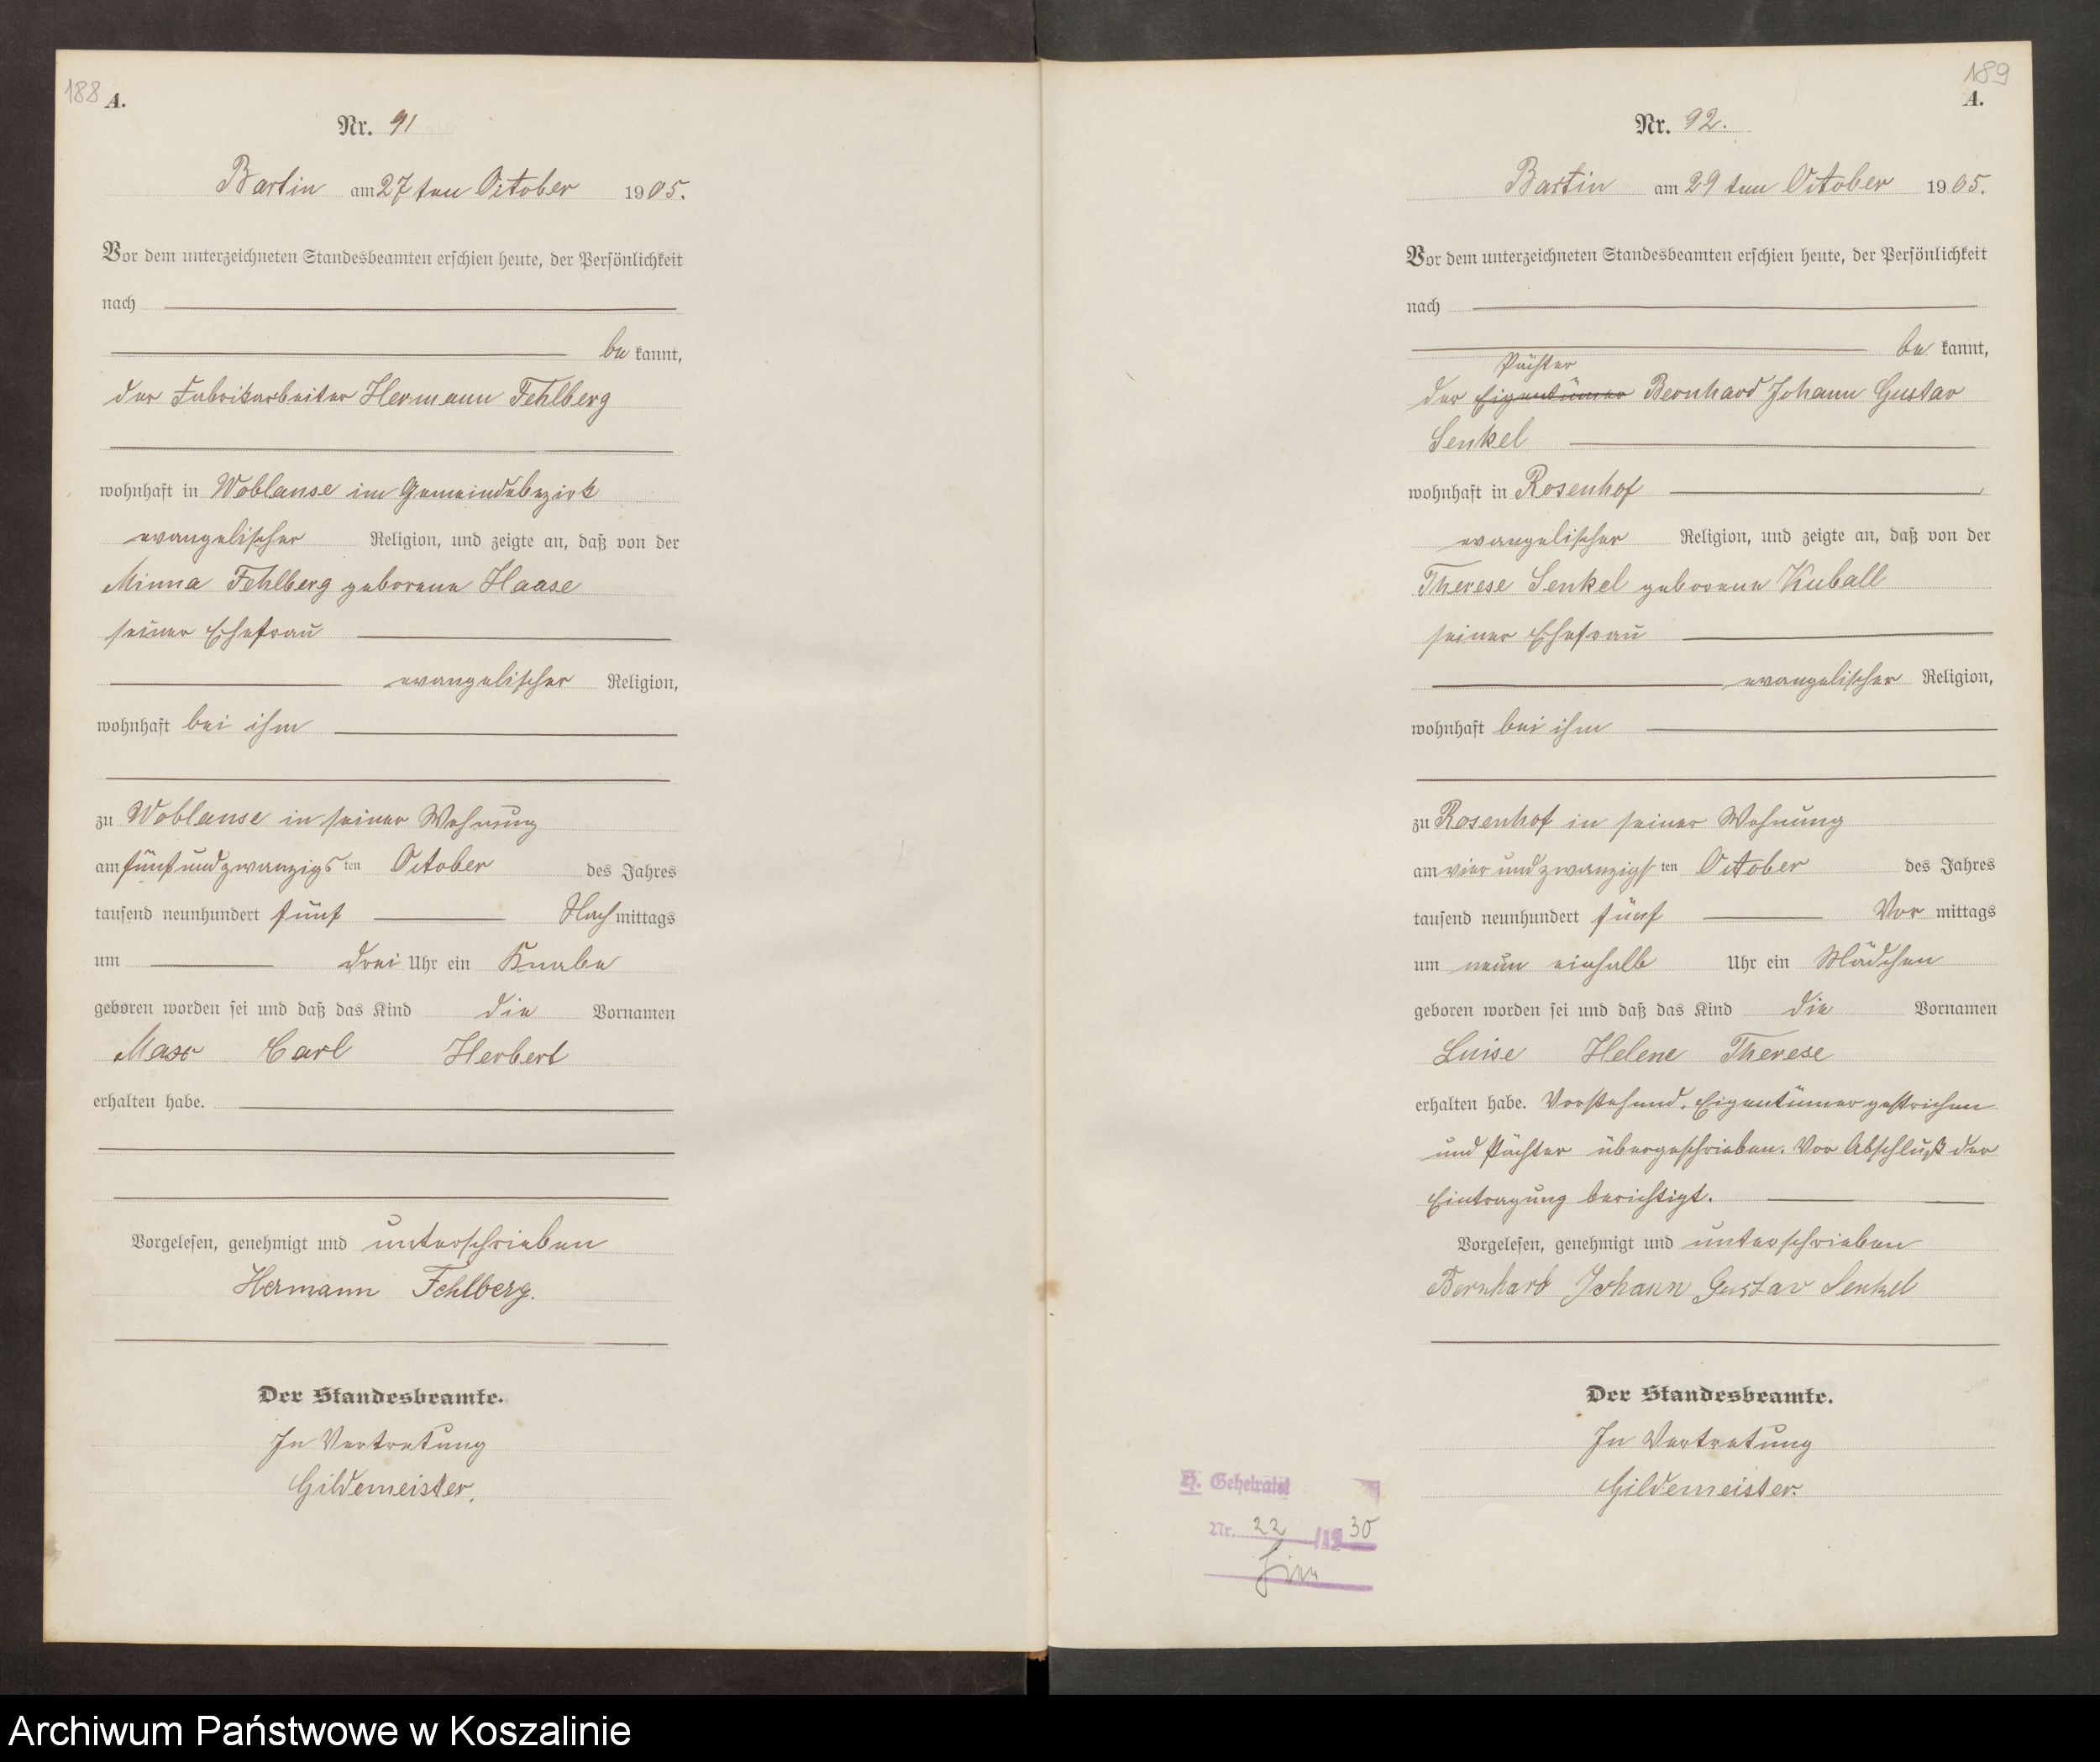 188
A.
Nr. 91
Bartin am 27ten October 1905.
Vor dem unterzeichneten Standesbeamten erschien heute, der Persönlichkeit
nach
be kannt,
der Fabrikarbeiter Hermann Fehlberg
wohnhaft in Woblanse im Gemeindebezirk
evangelischer Religion, und zeigte an, daß von der
Minna Fehlberg geborene Haase
seiner Ehefrau
evangelischer Religion,
wohnhaft bei ihm
zu Woblanse in seiner Wohnung
am fünfundzwanzigsten October des Jahres
tausend neunhundert fünf Nachmittags
um drei Uhr ein Knabe
geboren worden sei und daß das Kind die Vornamen
Max Carl Herbert
erhalten habe.
Vorgelesen, genehmigt und unterschrieben
Hermann Fehlberg.
Der Standesbeamte.
In Vertretung
Gildemeister.
189
A.
Nr. 92.
Bartin am 29ten October 1905.
Vor dem unterzeichneten Standesbeamten erschien heute, der Persönlichkeit
nach
be kannt,
Pächter
der Eigentümer Bernhard Johann Gustav
Senkel
wohnhaft in Rosenhof
evangelischer Religion, und zeigte an, daß von der
Therese Senkel geborene Kuball
seiner Ehefrau
evangelischer Religion,
wohnhaft bei ihm
zu Rosenhof in seiner Wohnung
am vierundzwanzigsten October des Jahres
tausend neunhundert fünf Vor mittags
um neun einhalb Uhr ein Mädchen
geboren worden sei und daß das Kind die Vornamen
Luise Helene Therese
erhalten habe. Vorstehend. Eigentümer gestrichen
und Pächter übergeschrieben. Vor Abschluß der
Eintragung berichtigt.
Vorgelesen, genehmigt und unterschrieben
Bernhard Johann Gustav Senkel
Der Standesbeamte.
In Vertretung
Gildemeister.
H. Geheiratet
Nr. 22 /19 30
Archiwum Państwowe w Koszalinie